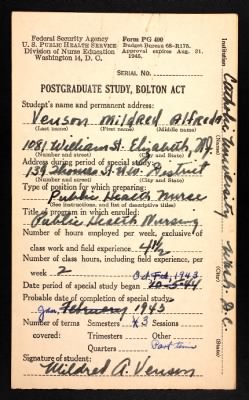 Federal Security Agency
U. S. PUBLIC HEALTH SERVICE
Division of Nurse Education
Washington 14, D. C.
Form PG 400
Budget Bureau 68-R175.
Approval expires Aug. 31,
1945.
SERIAL NO.
POSTGRADUATE STUDY, BOLTON ACT
Student's name and permanent address:
Venson Mildred Alfreda
(Last name) (First name) (Middle name)
1081 William St. Elizabeth, NJ
(Number and street) (City and State)
Address during period of special study:
139 Thomas St. N.W. District
(Number and street) (City and State)
Type of position for which preparing:
Public Health Nurse
(See instructions, and list of descriptive titles)
Title is program in which enrolled:
Public Health Nursing
Number of hours employed per week, exclusive of
class work and field experience 4½
Number of class hours, including field experience, per
week 2
Date period of special study began Oct. Feb, 1943
Probable date of completion of special study
Jan. February 1945
Number of terms Semesters 3 Sessions
covered: Trimesters Other
Quarters Part time
Signature of student:
Mildred A. Venson
Institution Catholic University Wash. D.C.
(Name) (City) (State)